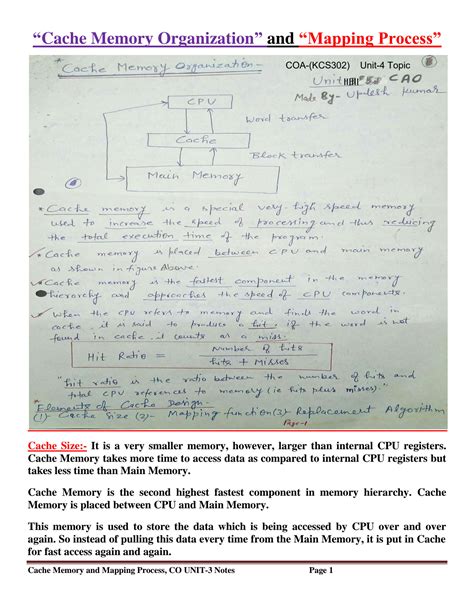 “Cache Memory Organization” and “Mapping Process”
Cache Memory Organization:-
COA-(KCS302) Unit-4 Topic
Unit CAO
Made By- Updesh Kumar
CPU
Word transfer
Cache
Block transfer
Main Memory
* Cache memory is a special very-high speed memory
used to increase the speed of processing and thus reducing
the total execution time of the program.
* Cache memory is placed between CPU and main memory
as shown in figure Above.
Cache memory is the fastest component in the memory
hierarchy and approaches the speed of CPU components.
When the CPU refers to memory and finds the word in
cache, it is said to produce a hit, if the word is not
found in cache, it counts as a miss.
Hit Ratio = Number of hits
hits + Misses
"hit ratio is the ratio between the number of hits and
total CPU references to memory (ie hits plus misses)."
* Elements of Cache Design-
(1) Cache Size (2)- Mapping function (3) Replacement Algorithm
Page-1
Cache Size:- It is a very smaller memory, however, larger than internal CPU registers.
Cache Memory takes more time to access data as compared to internal CPU registers but
takes less time than Main Memory.
Cache Memory is the second highest fastest component in memory hierarchy. Cache
Memory is placed between CPU and Main Memory.
This memory is used to store the data which is being accessed by CPU over and over
again. So instead of pulling this data every time from the Main Memory, it is put in Cache
for fast access again and again.
Cache Memory and Mapping Process, CO UNIT-3 Notes Page 1